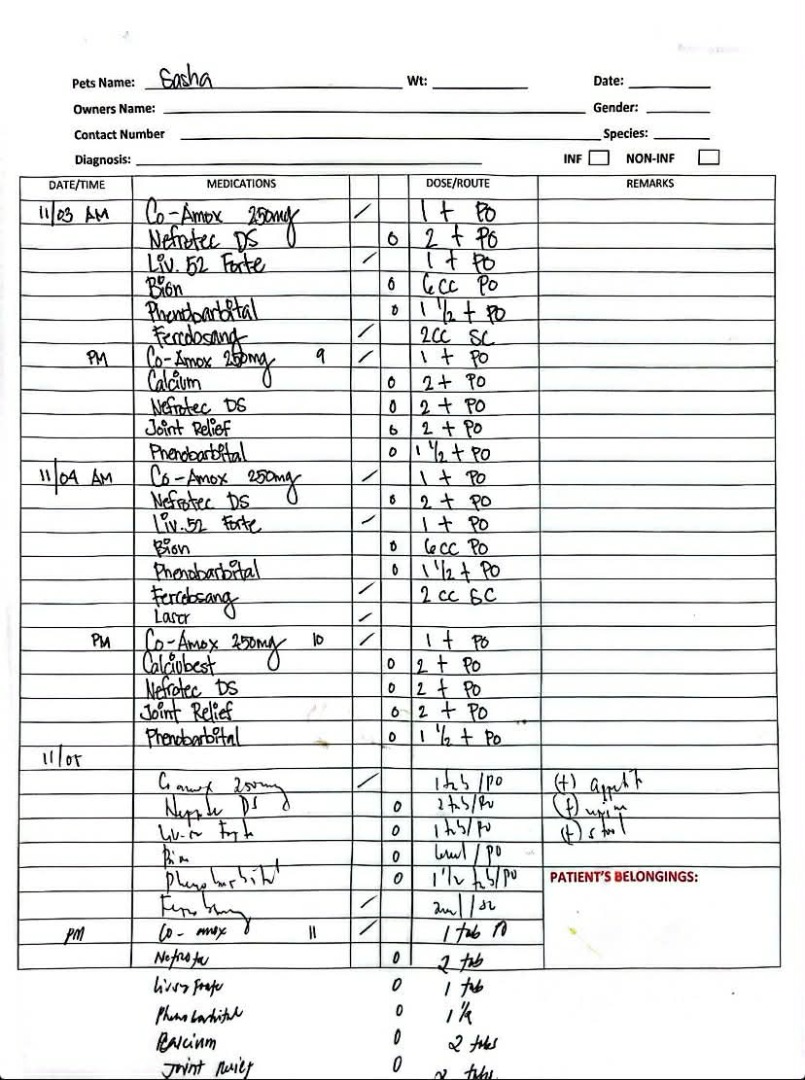 Pets Name: Sasha Wt: Date:
Owners Name: Gender:
Contact Number Species:
Diagnosis: INF NON-INF
DATE/TIME MEDICATIONS DOSE/ROUTE REMARKS
11/03 AM Co-Amox 250mg / 1 t PO
Nefrotec DS 0 2 t PO
Liv. 52 Forte / 1 t PO
Bion 0 6cc PO
Phenobarbital 0 1 1/2 t PO
Ferrdosang / 2cc SC
PM Co-Amox 250mg 9 / 1 t PO
Calcium 0 2 t PO
Nefrotec DS 0 2 t PO
Joint Relief 0 2 t PO
Phenobarbital 0 1 1/2 t PO
11/04 AM Co-Amox 250mg / 1 t PO
Nefrotec DS 0 2 t PO
Liv.52 Forte / 1 t PO
Bion 0 6cc PO
Phenobarbital 0 1 1/2 t PO
Ferrdosang / 2 cc SC
Laser /
PM Co-Amox 250mg 10 / 1 t PO
Calciubest 0 2 t PO
Nefrotec DS 0 2 t PO
Joint Relief 0 2 t PO
Phenobarbital 0 1 1/2 t PO
11/05
250mg / 1 tab/PO (+) appetit
DS 0 2 tab/PO (+) urine
0 1 tab/PO (+) stool
0 6ml/PO
Phenobarbital 0 1 1/2 tab/PO PATIENT'S BELONGINGS:
/ 2ml/SC
PM Co-amox 11 / 1 tab PO
0 2 tab
0 1 tab
Phenobarbital 0 1 1/2
Calcium 0 2 tabs
Joint 0 2 tabs